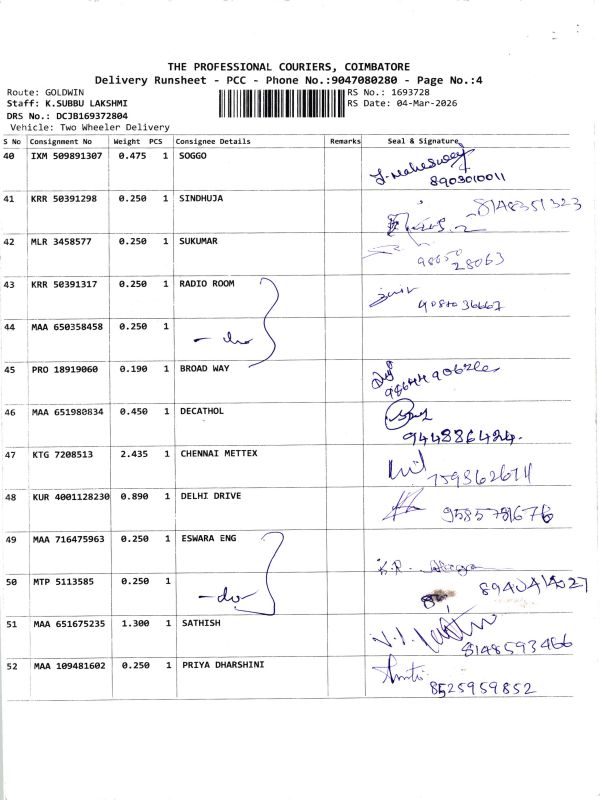 THE PROFESSIONAL COURIERS, COIMBATORE
Delivery Runsheet - PCC - Phone No.:9047080280 - Page No.:4
Route: GOLDWIN
RS No.: 1693728
Staff: K.SUBBU LAKSHMI
RS Date: 04-Mar-2026
DRS No.: DCJB169372804
Vehicle: Two Wheeler Delivery
S No Consignment No Weight PCS Consignee Details Remarks Seal & Signature
40 IXM 509891307 0.475 1 SOGGO
8903010011
41 KRR 50391298 0.250 1 SINDHUJA 8148351323
42 MLR 3458577 0.250 1 SUKUMAR
98650
28063
43 KRR 50391317 0.250 1 RADIO ROOM
9080036667
44 MAA 650358458 0.250 1
- do
45 PRO 18919060 0.190 1 BROAD WAY
46 MAA 651980834 0.450 1 DECATHOL
944886424.
47 KTG 7208513 2.435 1 CHENNAI METTEX
48 KUR 4001128230 0.890 1 DELHI DRIVE
9585781676
49 MAA 716475963 0.250 1 ESWARA ENG
K.R.
50 MTP 5113585 0.250 1
- do 8940414027
51 MAA 651675235 1.300 1 SATHISH
8148593466
52 MAA 109481602 0.250 1 PRIYA DHARSHINI
8525959852